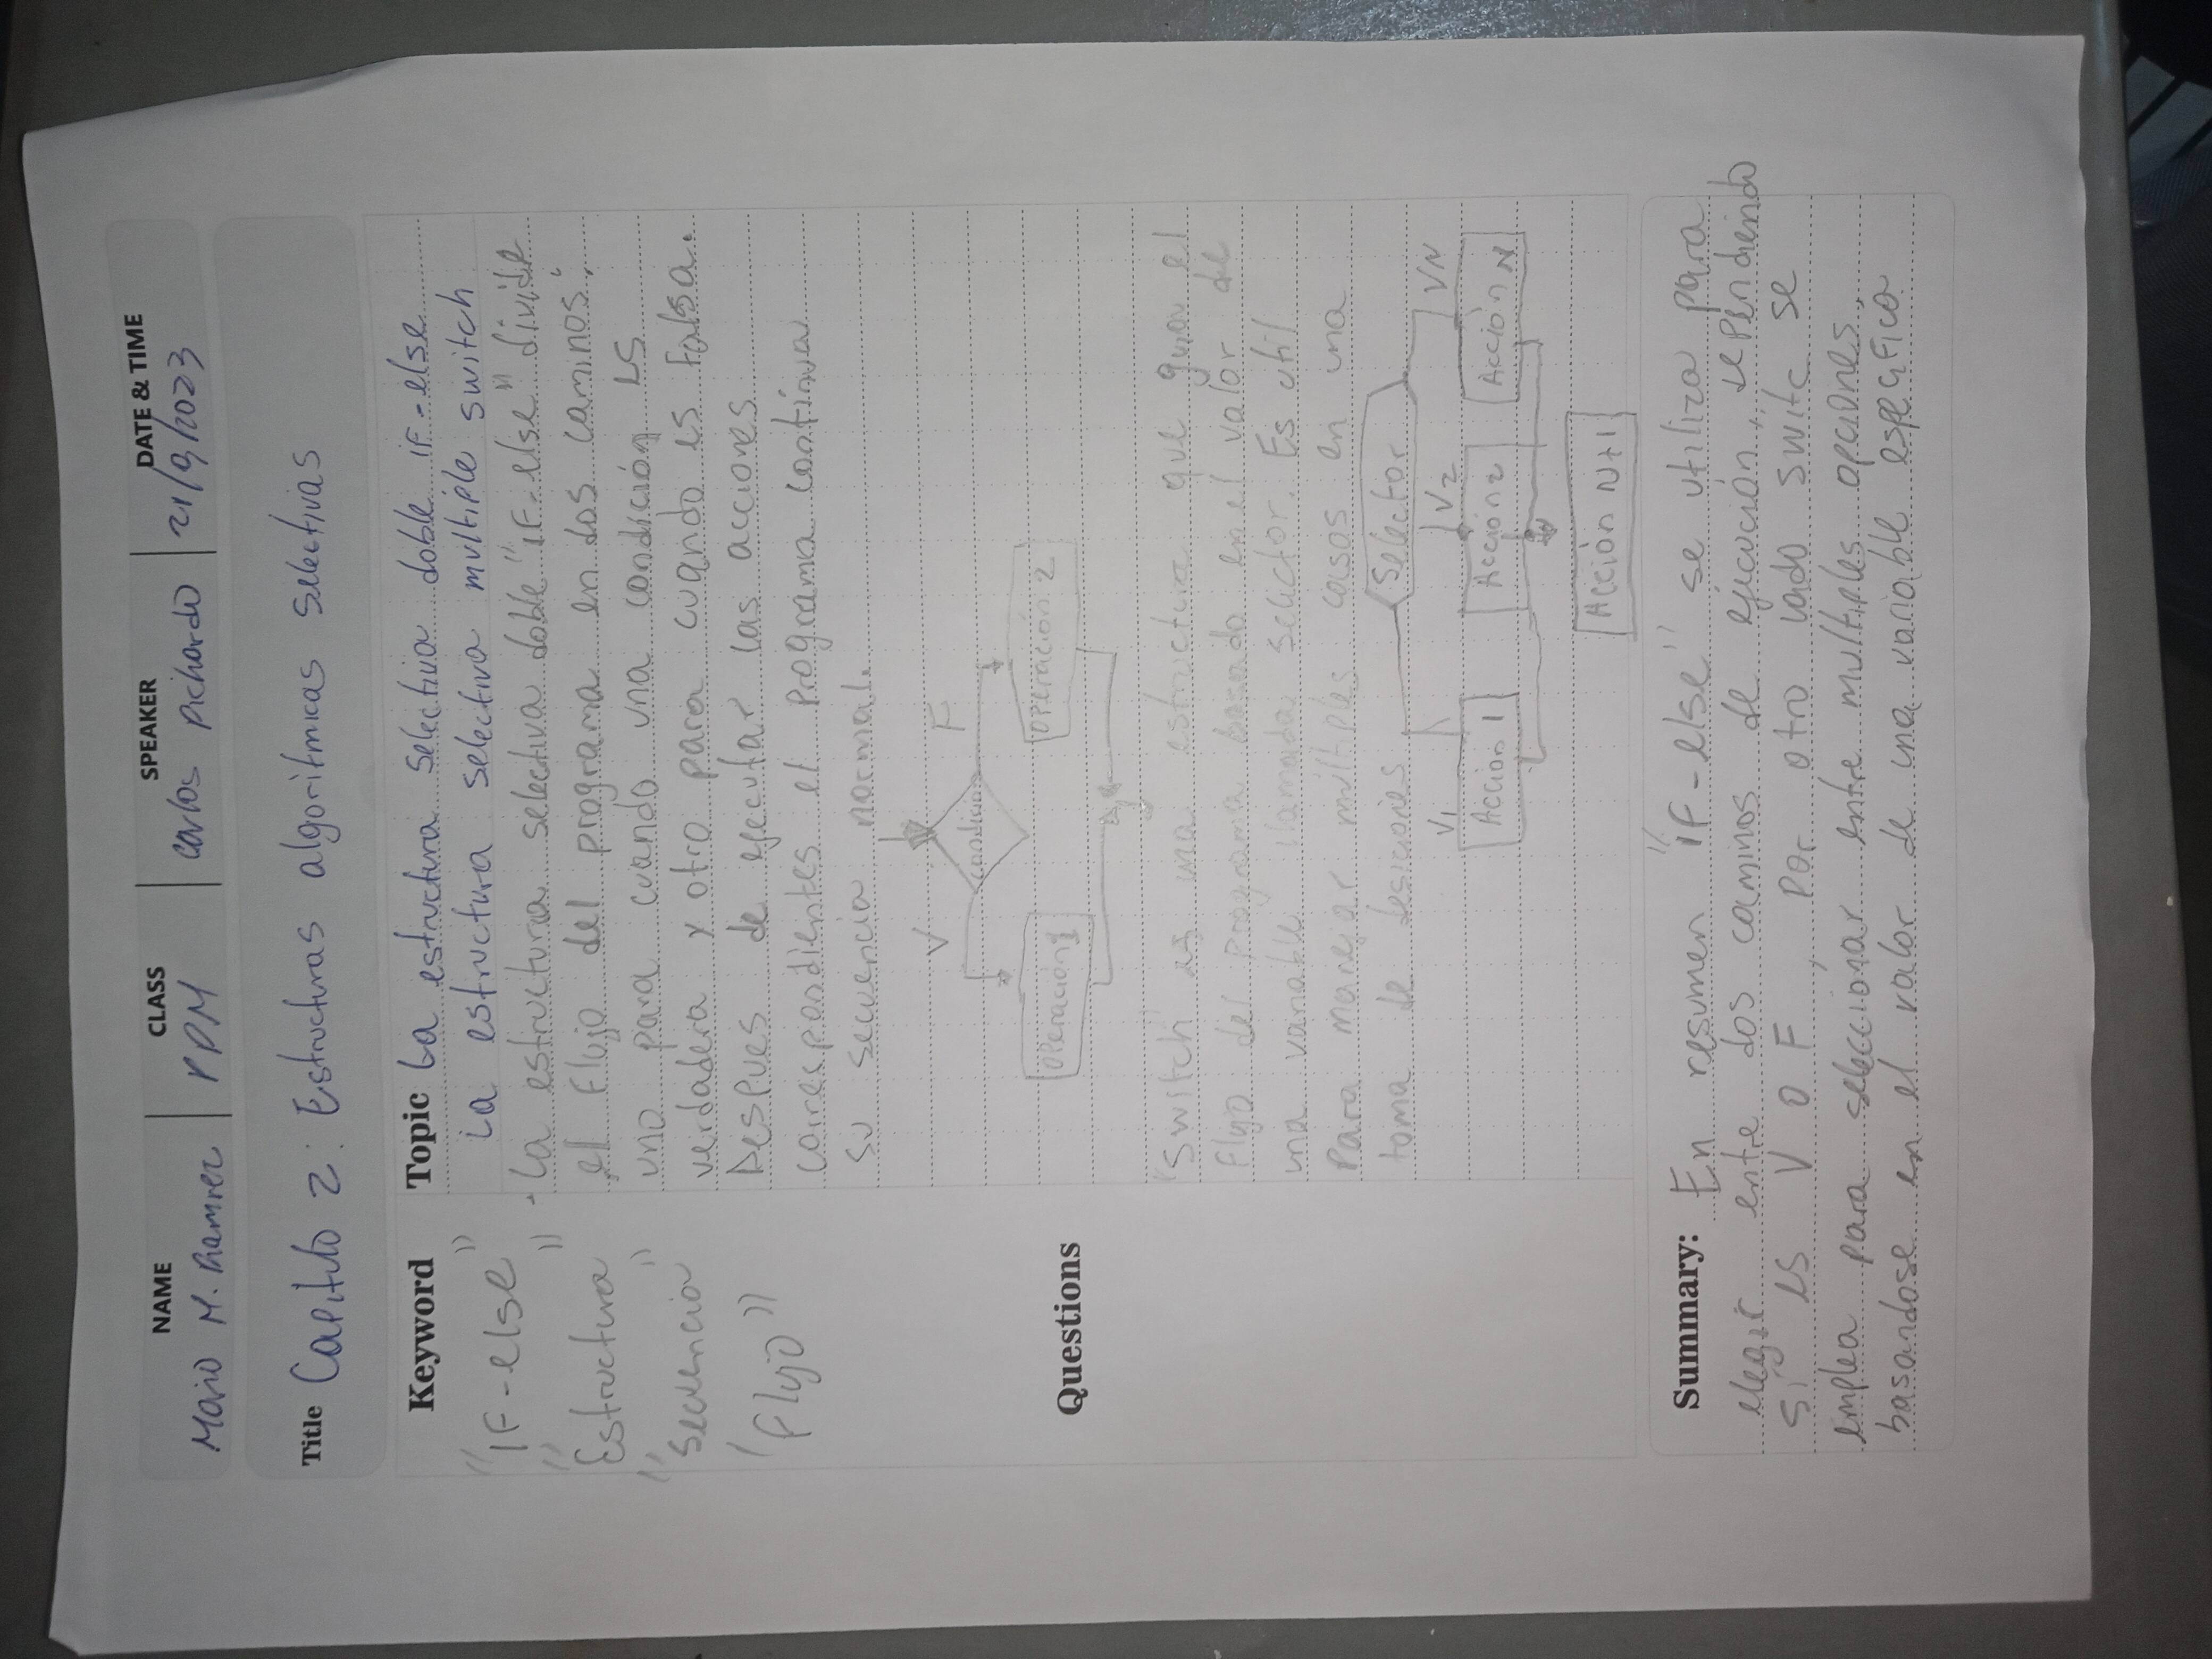 NAME CLASS SPEAKER DATE & TIME
Mario M. Ramirez PPM Carlos Pichardo 21/9/2023
Title Capitulo 2: Estructuras algoritmicas selectivas
Keyword
"IF-else"
"Estructura"
"Secuencia"
"Flujo"
Topic La estructura selectiva doble if-else
La estructura selectiva multiple switch
-La estructura selectiva doble "IF-else" divide
el Flujo del programa en dos caminos:
uno para cuando una condición es
verdadera y otro para cuando es Falsa.
Despues de ejecutar las acciones
correspondientes el programa continua
su secuencia normal.
V F
condición
Operación 1 Operación 2
Questions
"Switch" es una estructura que guia el
Flujo del programa basado en el valor de
una variable llamada selector. Es util
Para manejar múltiples casos en una
toma de desiciones
Selector
V1 V2 VN
Acción 1 Acción 2 Acción N
Acción N+1
Summary: En resumen "IF-else" se utiliza para
elegir entre dos caminos de ejecución, dependiendo
si es V o F, Por otro lado switc se
emplea para seleccionar entre multiples opciones,
basandose en el valor de una variable especifica